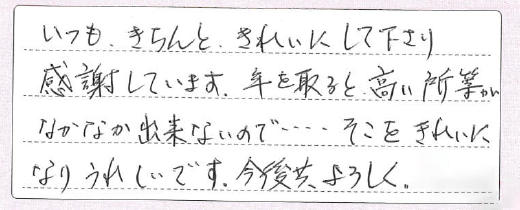 いつも、きちんと、きれいにして下さり
感謝しています。年を取ると、高い所等が
なかなか出来ないので‥‥そこをきれいに
なりうれしいです。今後共、よろしく。